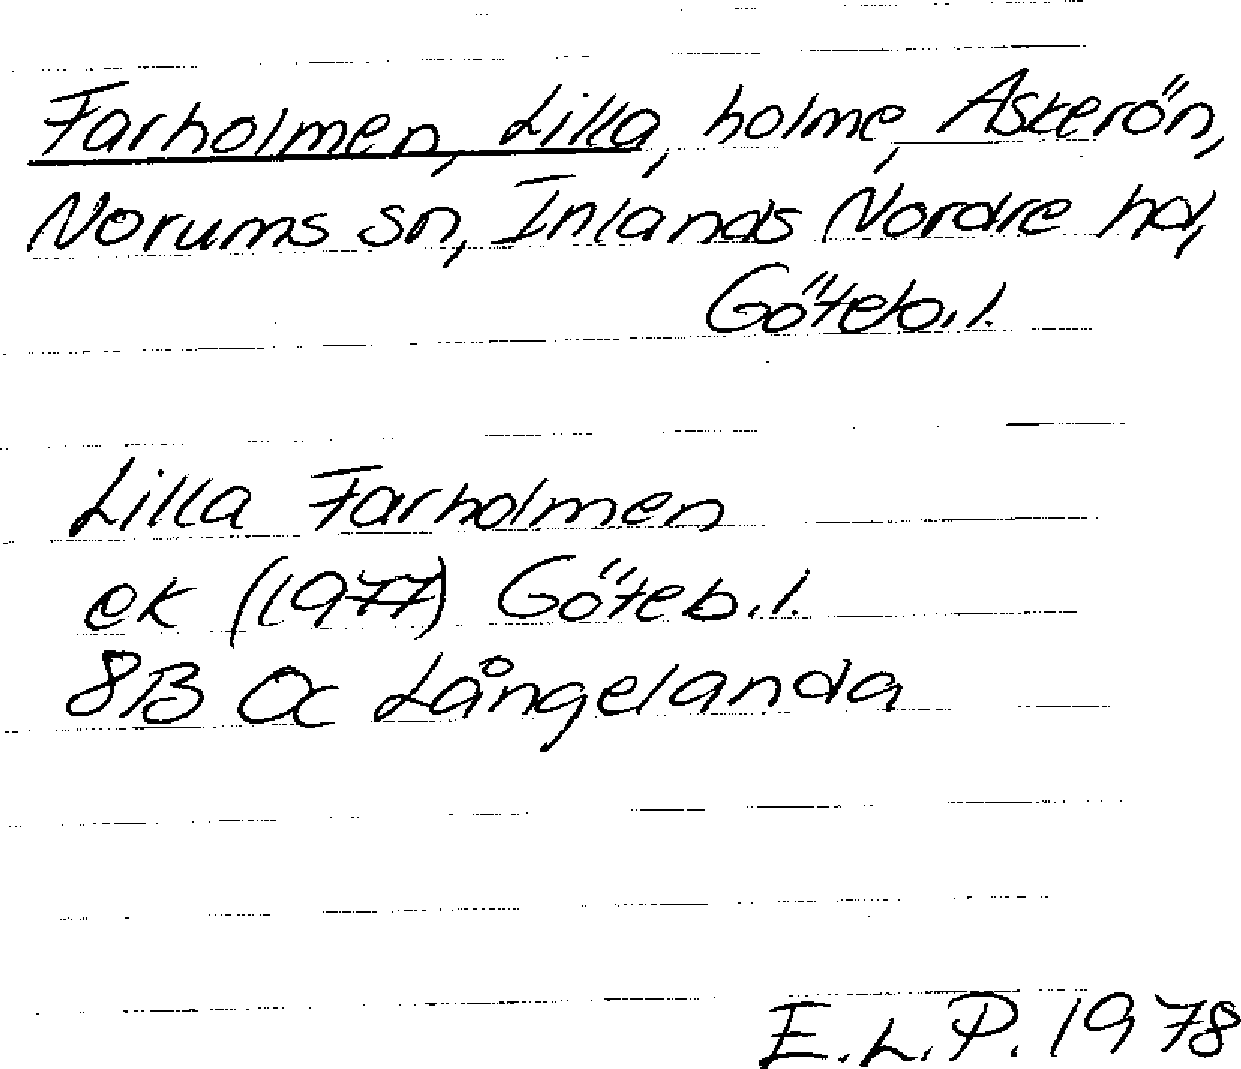 Farholmen, Lilla, holme, Askerön,
Norums sn, Inlands Nordre hd,
Göteb.l.
Lilla Farholmen
ek (1977) Göteb.l.
8B 0c Långelanda
E.L.P. 1978